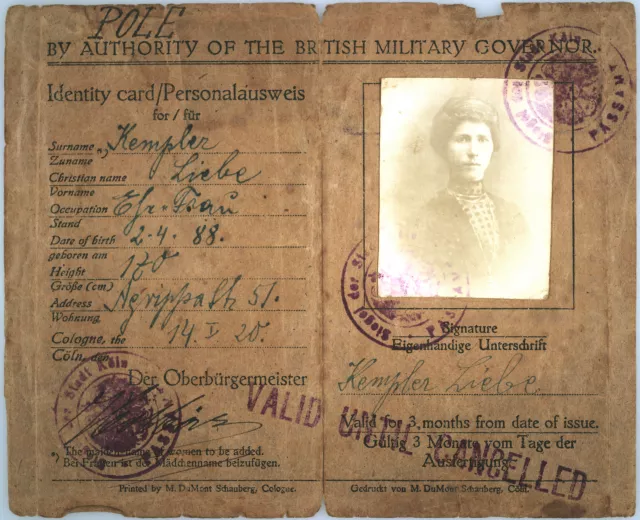 POLE
BY AUTHORITY OF THE BRITISH MILITARY GOVERNOR.
Identity card/Personalausweis
for / für
Surname *) Kempler
Zuname
Christian name Liebe
Vorname
Occupation Ehe-Frau
Stand
Date of birth 2.4. 88.
geboren am
Height 170
Größe (cm)
Address 51.
Wohnung
Cologne, the 14 V 20.
Cöln, den
Der Oberbürgermeister
*) The maiden name of women to be added.
Bei Frauen ist der Mädchenname beizufügen.
Printed by M. DuMont Schauberg, Cologne.
Siegel der Stadt Köln
PASSAMT
Siegel der Stadt
PASSAMT
Signature
Eigenhändige Unterschrift
Kempler Liebe
Valid for 3 months from date of issue.
Gültig 3 Monate vom Tage der
Ausfertigung.
VALID UNTIL CANCELLED
Gedruckt von M. DuMont Schauberg, Cöln.
der Stadt Köln
PASSAMT